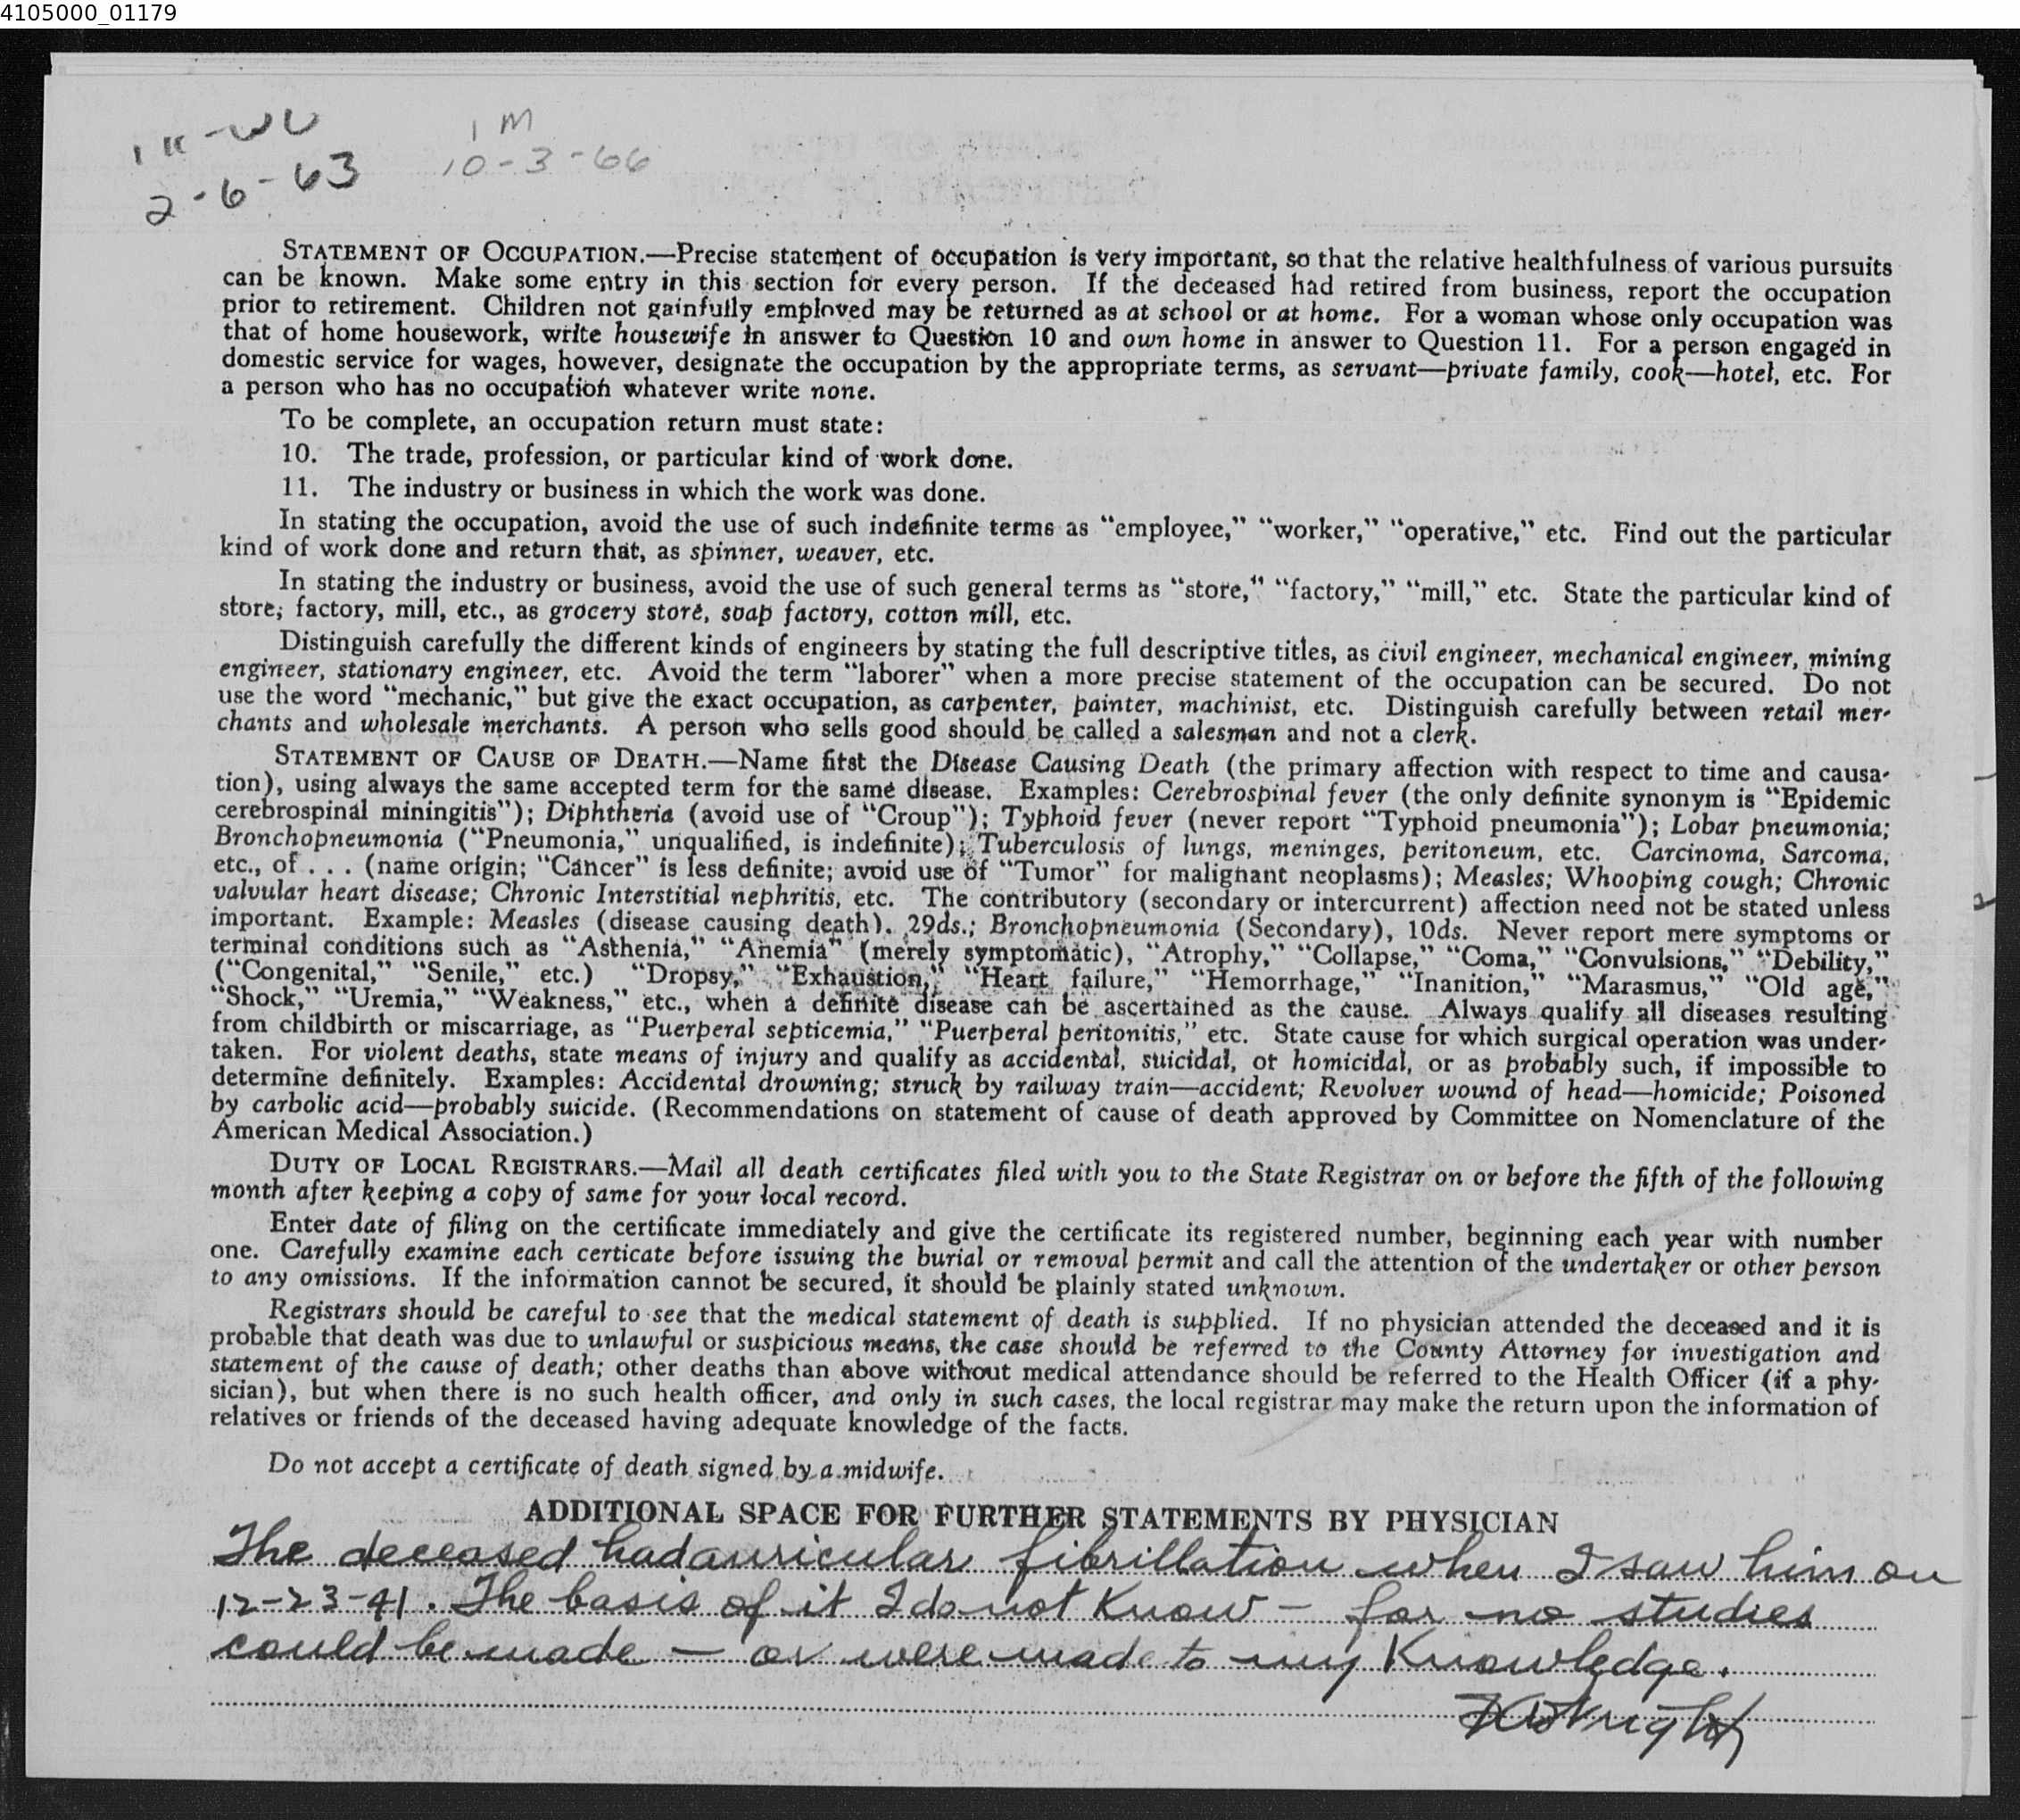 4105000_01179
2-6-63
1 M
10-3-66
STATEMENT OF OCCUPATION.—Precise statement of occupation is very important, so that the relative healthfulness of various pursuits
can be known. Make some entry in this section for every person. If the deceased had retired from business, report the occupation
prior to retirement. Children not gainfully employed may be returned as at school or at home. For a woman whose only occupation was
that of home housework, write housewife in answer to Question 10 and own home in answer to Question 11. For a person engaged in
domestic service for wages, however, designate the occupation by the appropriate terms, as servant—private family, cook—hotel, etc. For
a person who has no occupation whatever write none.
To be complete, an occupation return must state:
10. The trade, profession, or particular kind of work done.
11. The industry or business in which the work was done.
In stating the occupation, avoid the use of such indefinite terms as “employee,” “worker,” “operative,” etc. Find out the particular
kind of work done and return that, as spinner, weaver, etc.
In stating the industry or business, avoid the use of such general terms as “store,” “factory,” “mill,” etc. State the particular kind of
store, factory, mill, etc., as grocery store, soap factory, cotton mill, etc.
Distinguish carefully the different kinds of engineers by stating the full descriptive titles, as civil engineer, mechanical engineer, mining
engineer, stationary engineer, etc. Avoid the term “laborer” when a more precise statement of the occupation can be secured. Do not
use the word “mechanic,” but give the exact occupation, as carpenter, painter, machinist, etc. Distinguish carefully between retail mer-
chants and wholesale merchants. A person who sells good should be called a salesman and not a clerk.
STATEMENT OF CAUSE OF DEATH.—Name first the Disease Causing Death (the primary affection with respect to time and causa-
tion), using always the same accepted term for the same disease. Examples: Cerebrospinal fever (the only definite synonym is “Epidemic
cerebrospinal miningitis”); Diphtheria (avoid use of “Croup”); Typhoid fever (never report “Typhoid pneumonia”); Lobar pneumonia;
Bronchopneumonia (“Pneumonia,” unqualified, is indefinite); Tuberculosis of lungs, meninges, peritoneum, etc. Carcinoma, Sarcoma,
etc., of . . . (name origin; “Cancer” is less definite; avoid use of “Tumor” for malignant neoplasms); Measles; Whooping cough; Chronic
valvular heart disease; Chronic Interstitial nephritis, etc. The contributory (secondary or intercurrent) affection need not be stated unless
important. Example: Measles (disease causing death), 29ds.; Bronchopneumonia (Secondary), 10ds. Never report mere symptoms or
terminal conditions such as “Asthenia,” “Anemia” (merely symptomatic), “Atrophy,” “Collapse,” “Coma,” “Convulsions,” “Debility,”
(“Congenital,” “Senile,” etc.) “Dropsy,” “Exhaustion,” “Heart failure,” “Hemorrhage,” “Inanition,” “Marasmus,” “Old age,”
“Shock,” “Uremia,” “Weakness,” etc., when a definite disease can be ascertained as the cause. Always qualify all diseases resulting
from childbirth or miscarriage, as “Puerperal septicemia,” “Puerperal peritonitis,” etc. State cause for which surgical operation was under-
taken. For violent deaths, state means of injury and qualify as accidental, suicidal, or homicidal, or as probably such, if impossible to
determine definitely. Examples: Accidental drowning; struck by railway train—accident; Revolver wound of head—homicide; Poisoned
by carbolic acid—probably suicide. (Recommendations on statement of cause of death approved by Committee on Nomenclature of the
American Medical Association.)
DUTY OF LOCAL REGISTRARS.—Mail all death certificates filed with you to the State Registrar on or before the fifth of the following
month after keeping a copy of same for your local record.
Enter date of filing on the certificate immediately and give the certificate its registered number, beginning each year with number
one. Carefully examine each certicate before issuing the burial or removal permit and call the attention of the undertaker or other person
to any omissions. If the information cannot be secured, it should be plainly stated unknown.
Registrars should be careful to see that the medical statement of death is supplied. If no physician attended the deceased and it is
probable that death was due to unlawful or suspicious means, the case should be referred to the County Attorney for investigation and
statement of the cause of death; other deaths than above without medical attendance should be referred to the Health Officer (if a phy-
sician), but when there is no such health officer, and only in such cases, the local registrar may make the return upon the information of
relatives or friends of the deceased having adequate knowledge of the facts.
Do not accept a certificate of death signed by a midwife.
ADDITIONAL SPACE FOR FURTHER STATEMENTS BY PHYSICIAN
The deceased had auricular fibrillation when I saw him on
12-23-41. The basis of it I do not Know - for no studies
could be made - or were made to my Knowledge.
Wright